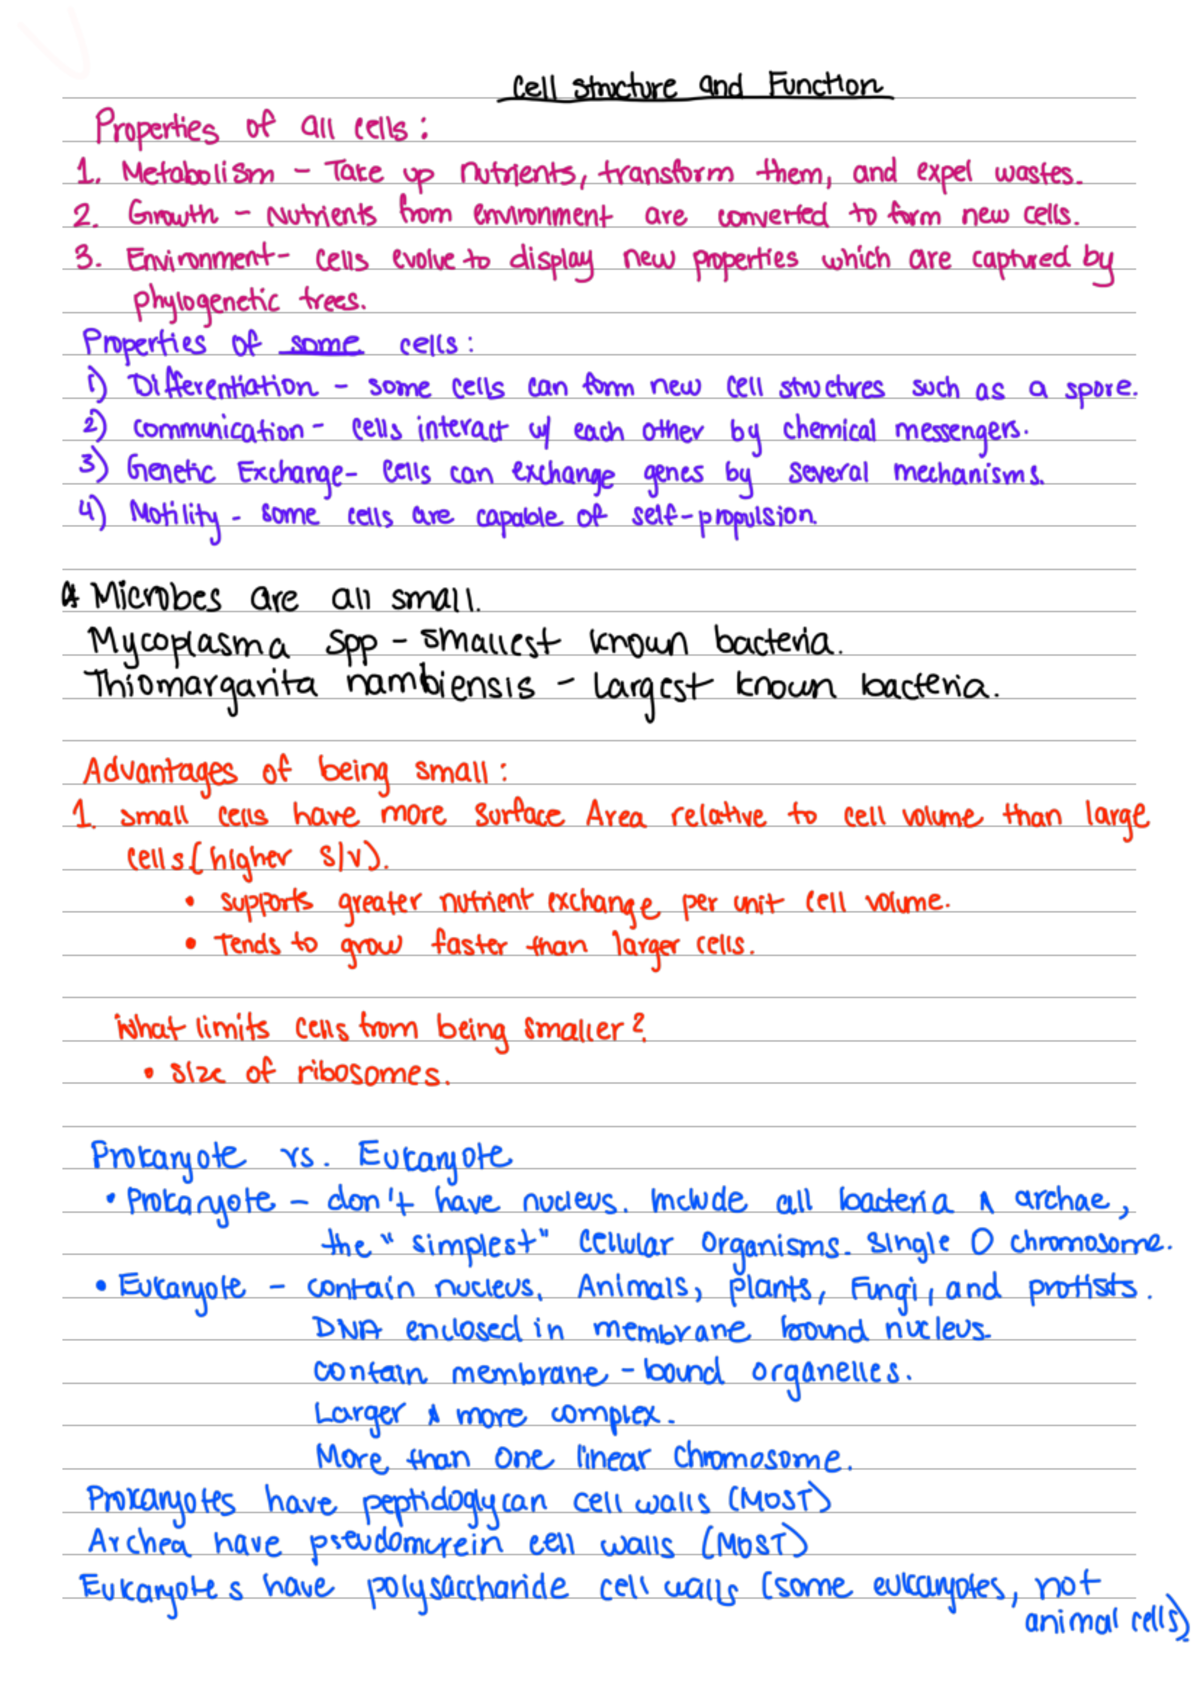 Cell Structure and Function
Properties of all cells:
1. Metabolism - Take up nutrients, transform them, and expel wastes.
2. Growth - Nutrients from environment are converted to form new cells.
3. Environment- cells evolve to display new properties which are captured by
phylogenetic trees.
Properties of some cells:
1) Differentiation - some cells can form new cell structures such as a spore.
2) communication - cells interact w/ each other by chemical messengers.
3) Genetic Exchange- Cells can exchange genes by several mechanisms.
4) Motility - some cells are capable of self-propulsion.
* Microbes are all small.
Mycoplasma Spp - smallest known bacteria.
Thiomargarita nambiensis - Largest known bacteria.
Advantages of being small:
1. small cells have more Surface Area relative to cell volume than large
cells (higher S/V).
• supports greater nutrient exchange per unit cell volume.
• Tends to grow faster than larger cells.
What limits cells from being smaller?
• size of ribosomes.
Prokaryote vs. Eukaryote
• Prokaryote - don't have nucleus. Include all bacteria & archae,
the "simplest" cellular organisms. Single O chromosome.
• Eukaryote - contain nucleus, Animals, plants, Fungi, and protists.
DNA enclosed in membrane bound nucleus.
contain membrane-bound organelles.
Larger & more complex.
More than one linear chromosome.
Prokaryotes have peptidoglycan cell walls (MOST)
Archea have pseudomurein cell walls (MOST)
Eukaryotes have polysaccharide cell walls (some eukaryotes, not
animal cells).